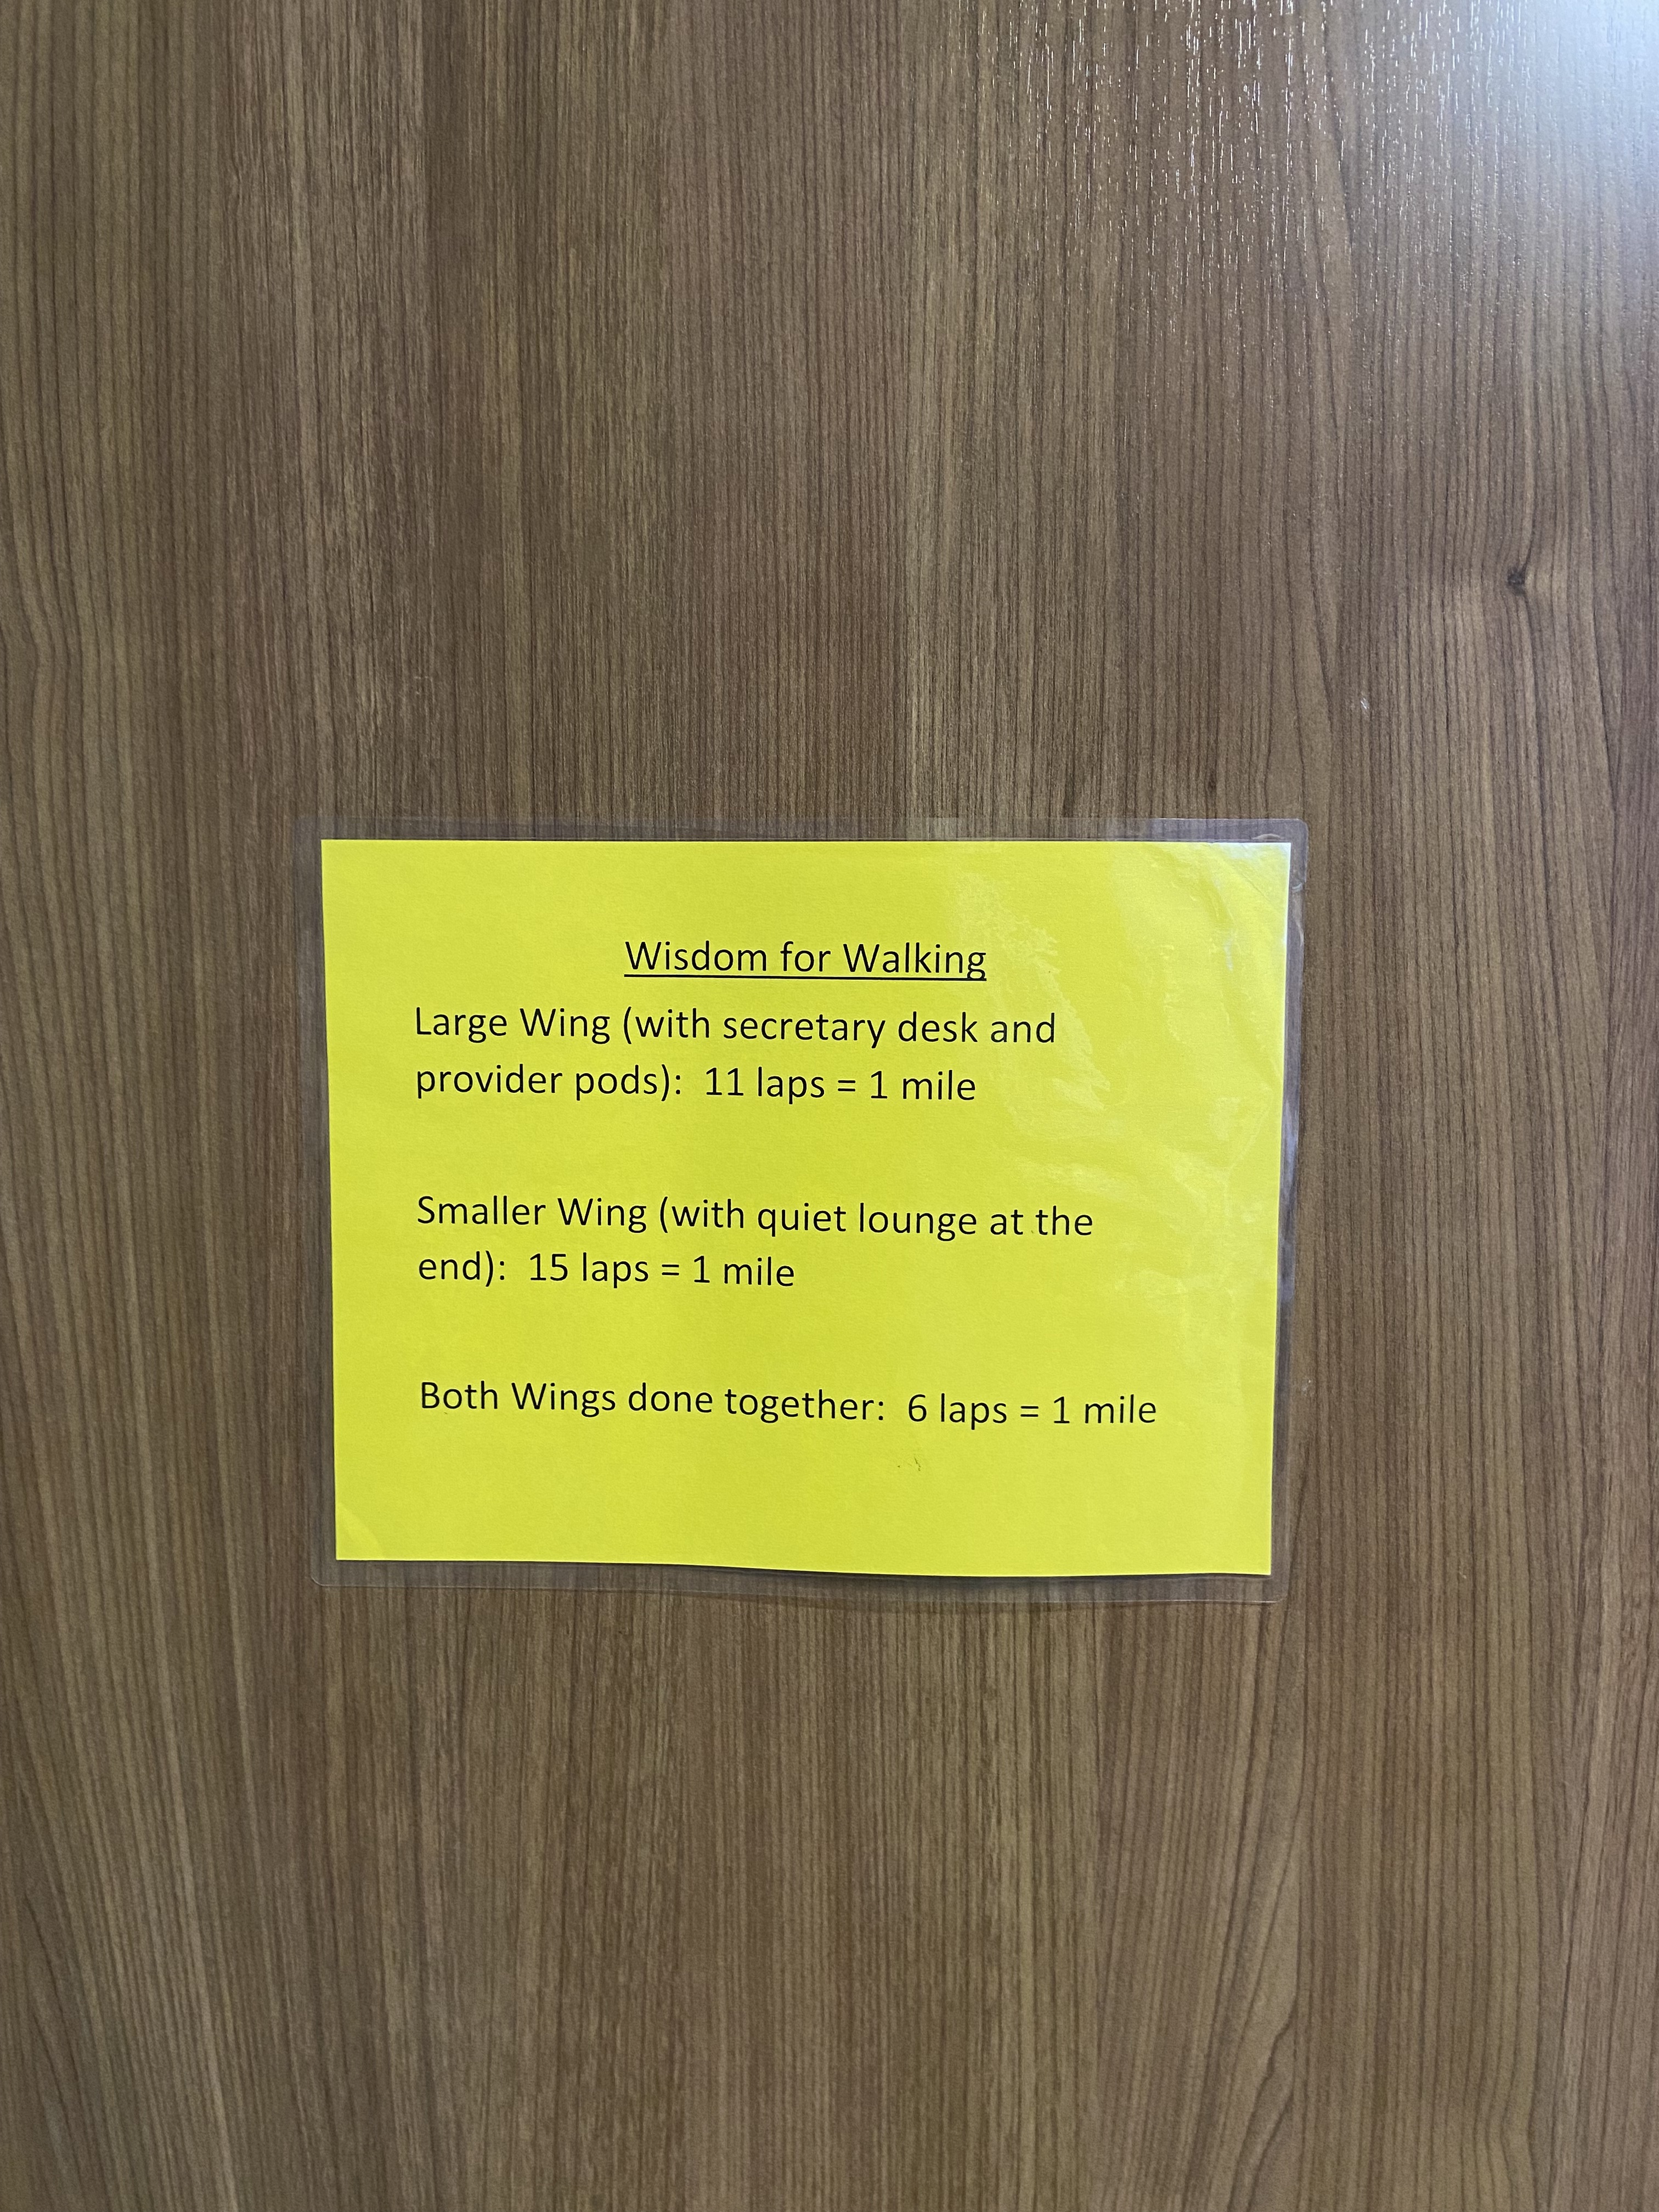 Wisdom for Walking
Large Wing (with secretary desk and
provider pods):  11 laps = 1 mile
Smaller Wing (with quiet lounge at the
end):  15 laps = 1 mile
Both Wings done together:  6 laps = 1 mile